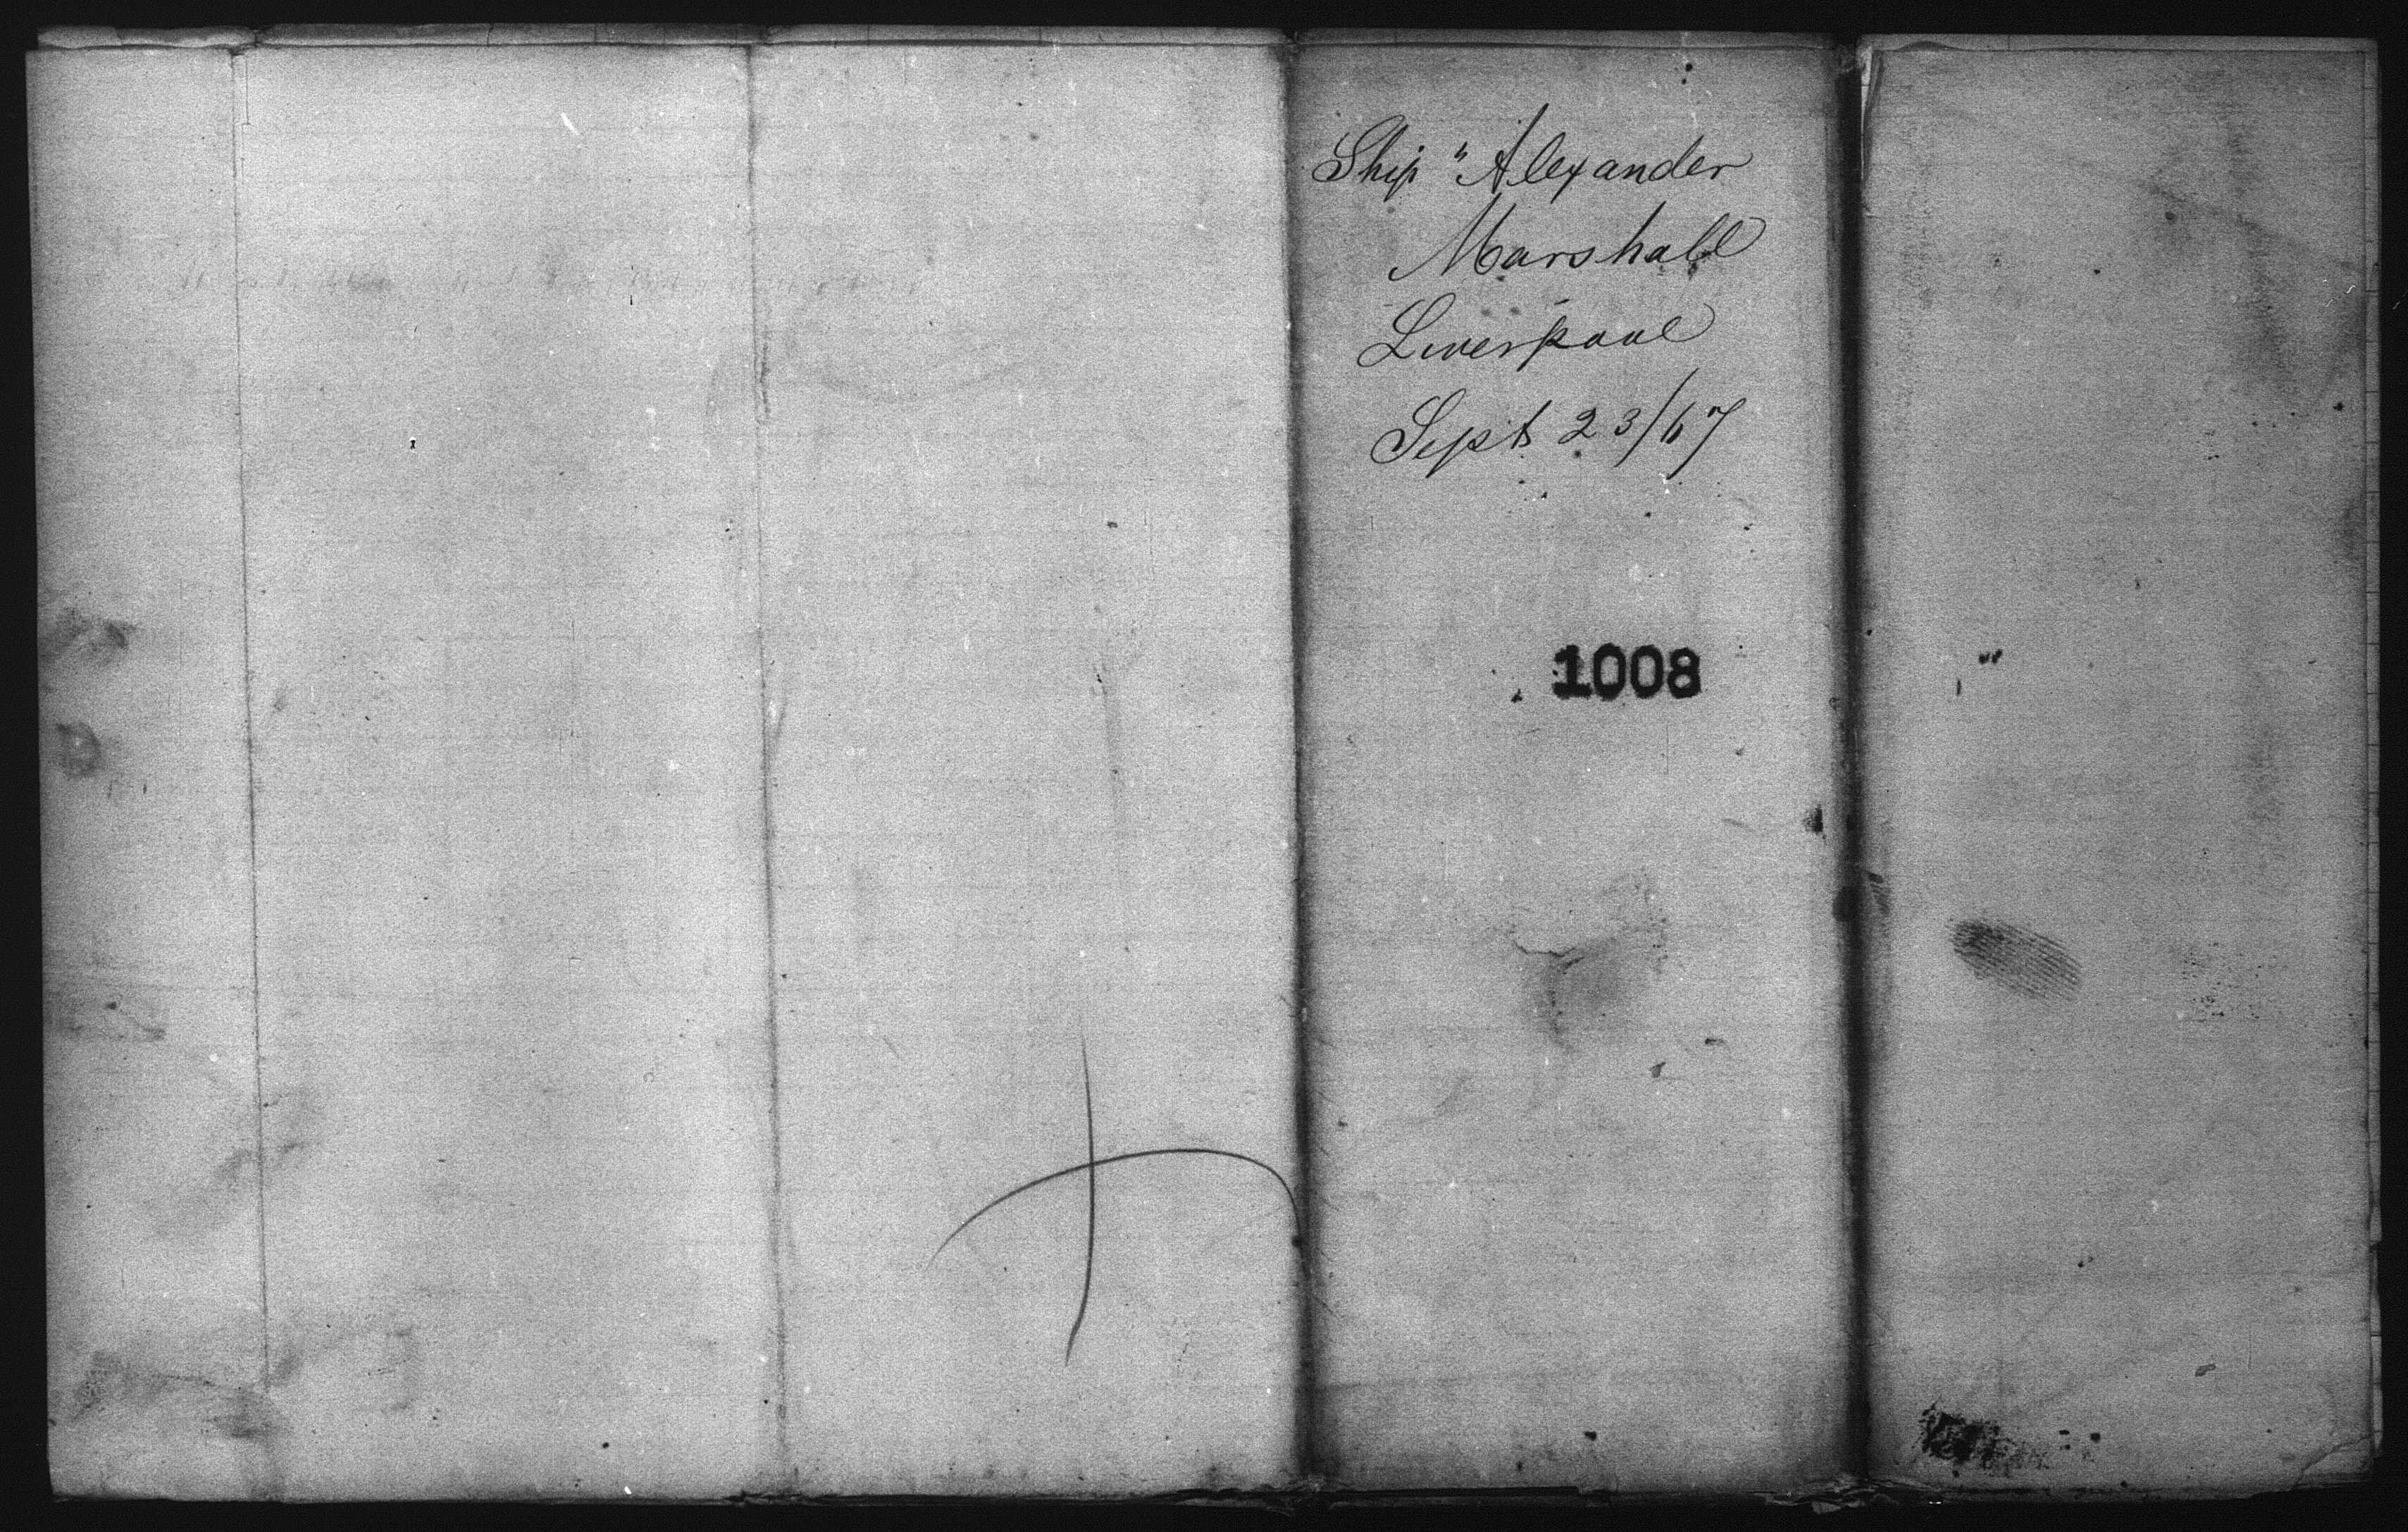 Ship "Alexander
Marshall
Liverpool
Sept 23/67
1008